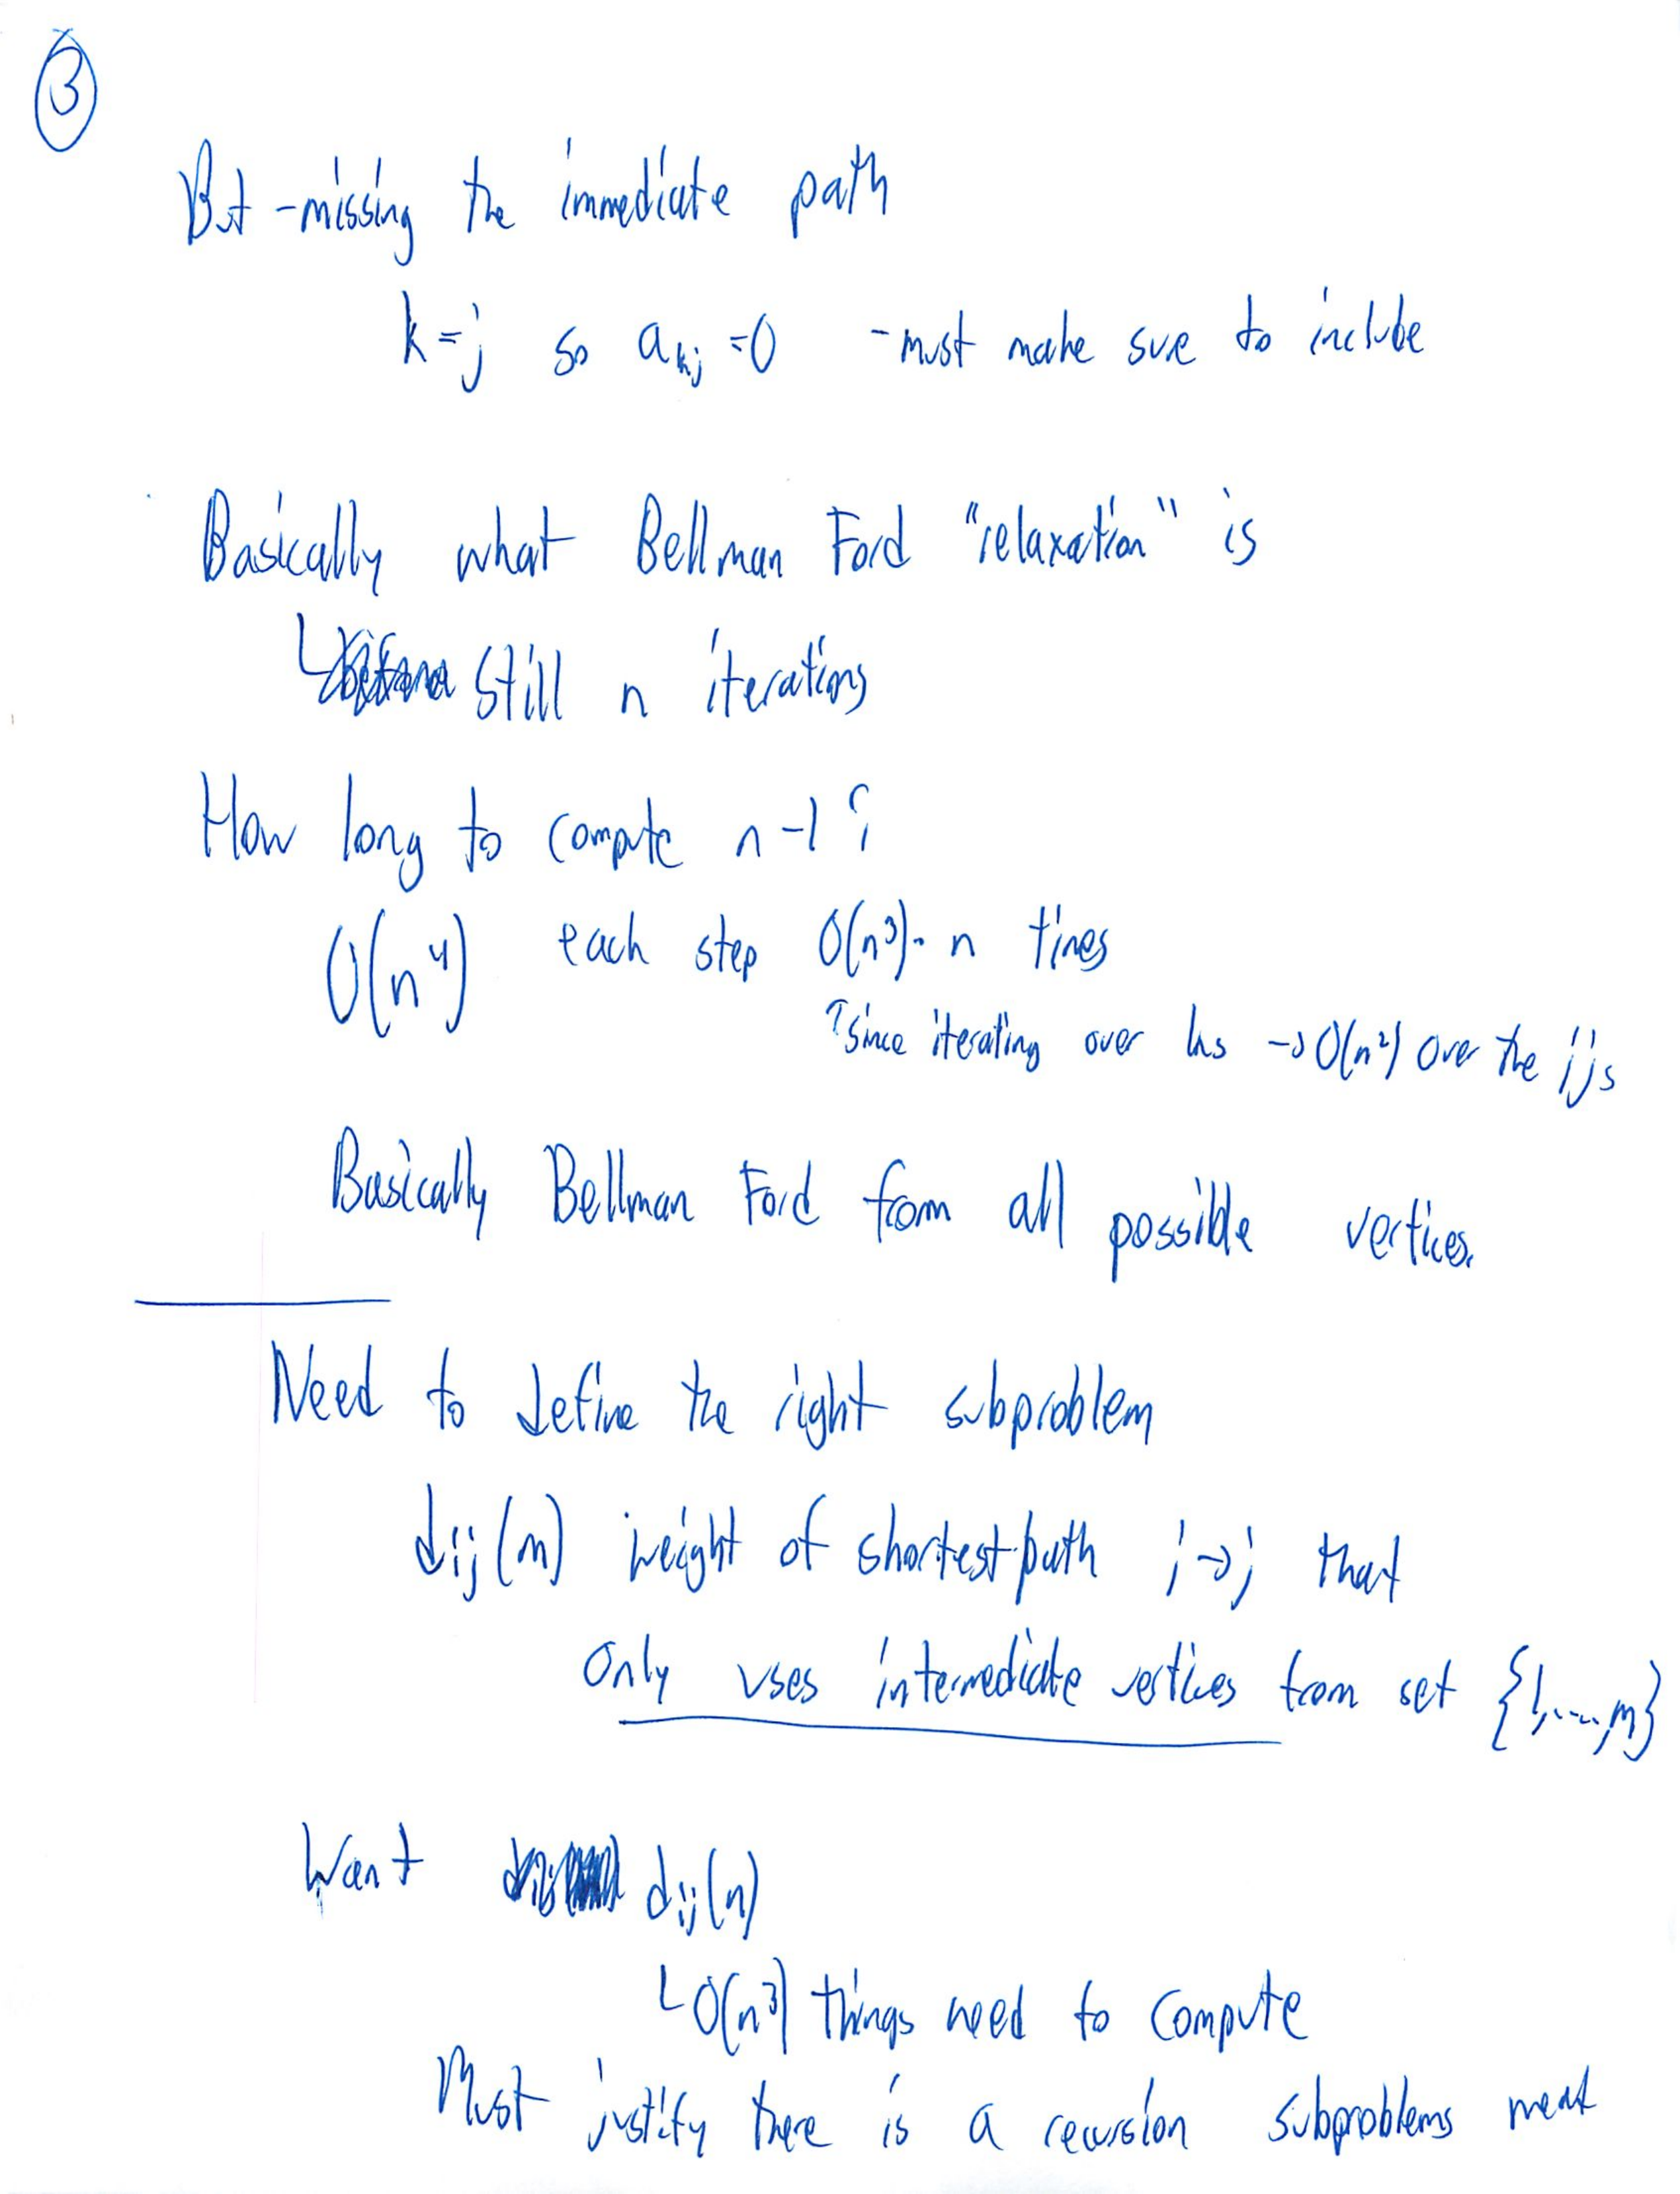 3
But - missing the immediate path
k=j so a_kj = 0 - must make sure to include
Basically what Bellman Ford "relaxation" is
Still n iterations
How long to compute n-1?
O(n^4) each step O(n^3) · n times
↑ since iterating over ks → O(n^2) over the ijs
Basically Bellman Ford from all possible vertices.
Need to define the right subproblem
d_ij(m) weight of shortest path i→j that
Only uses intermediate vertices from set {1,...,m}
Want d_ij(n)
O(n^3) things need to compute
Must justify there is a recursion subproblems